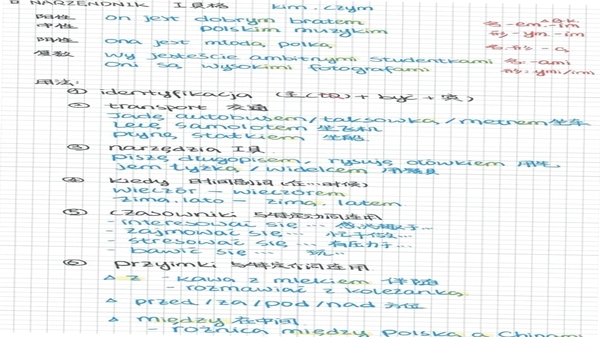 NARZENDNIK 工具格 kim.czym
阳性 on jest dobrym bratem 名-em.-im
中性 polskim muzykim 形-ym.-im
阴性 ona jest młodą, polką 名.形-ą
复数 wy jesteście ambitnymi studentkami 名-ami
Oni są wysokimi fotografami 形:ymi/imi
用法:
① identyfikacja (主(To)+być+宾)
② transport 交通
Jadę autobusem/taksówką/metrem 坐车
Lecę samolotem 坐飞机
Płynę statkiem 坐船
③ narzędzia 工具
piszę długopisem, rysuję ołówkiem 用笔
jem łyżką/widelcem 用餐具
④ kiedy 时间
wieczór - wieczorem
zima.lato - zimą.latem
⑤ czasowniki 与特定动词连用
- interesować się ... 感兴趣于...
- zajmować się ... 忙于做...
- stresować się ... 有压力于...
- bawić się ... 玩...
⑥ przyimki 与特定介词连用
△ z - kawa z mlekiem 伴随
- rozmawiać z koleżanką
△ przed/za/pod/nad 方位
△ między 在中间
- różnica między Polską a Chinami